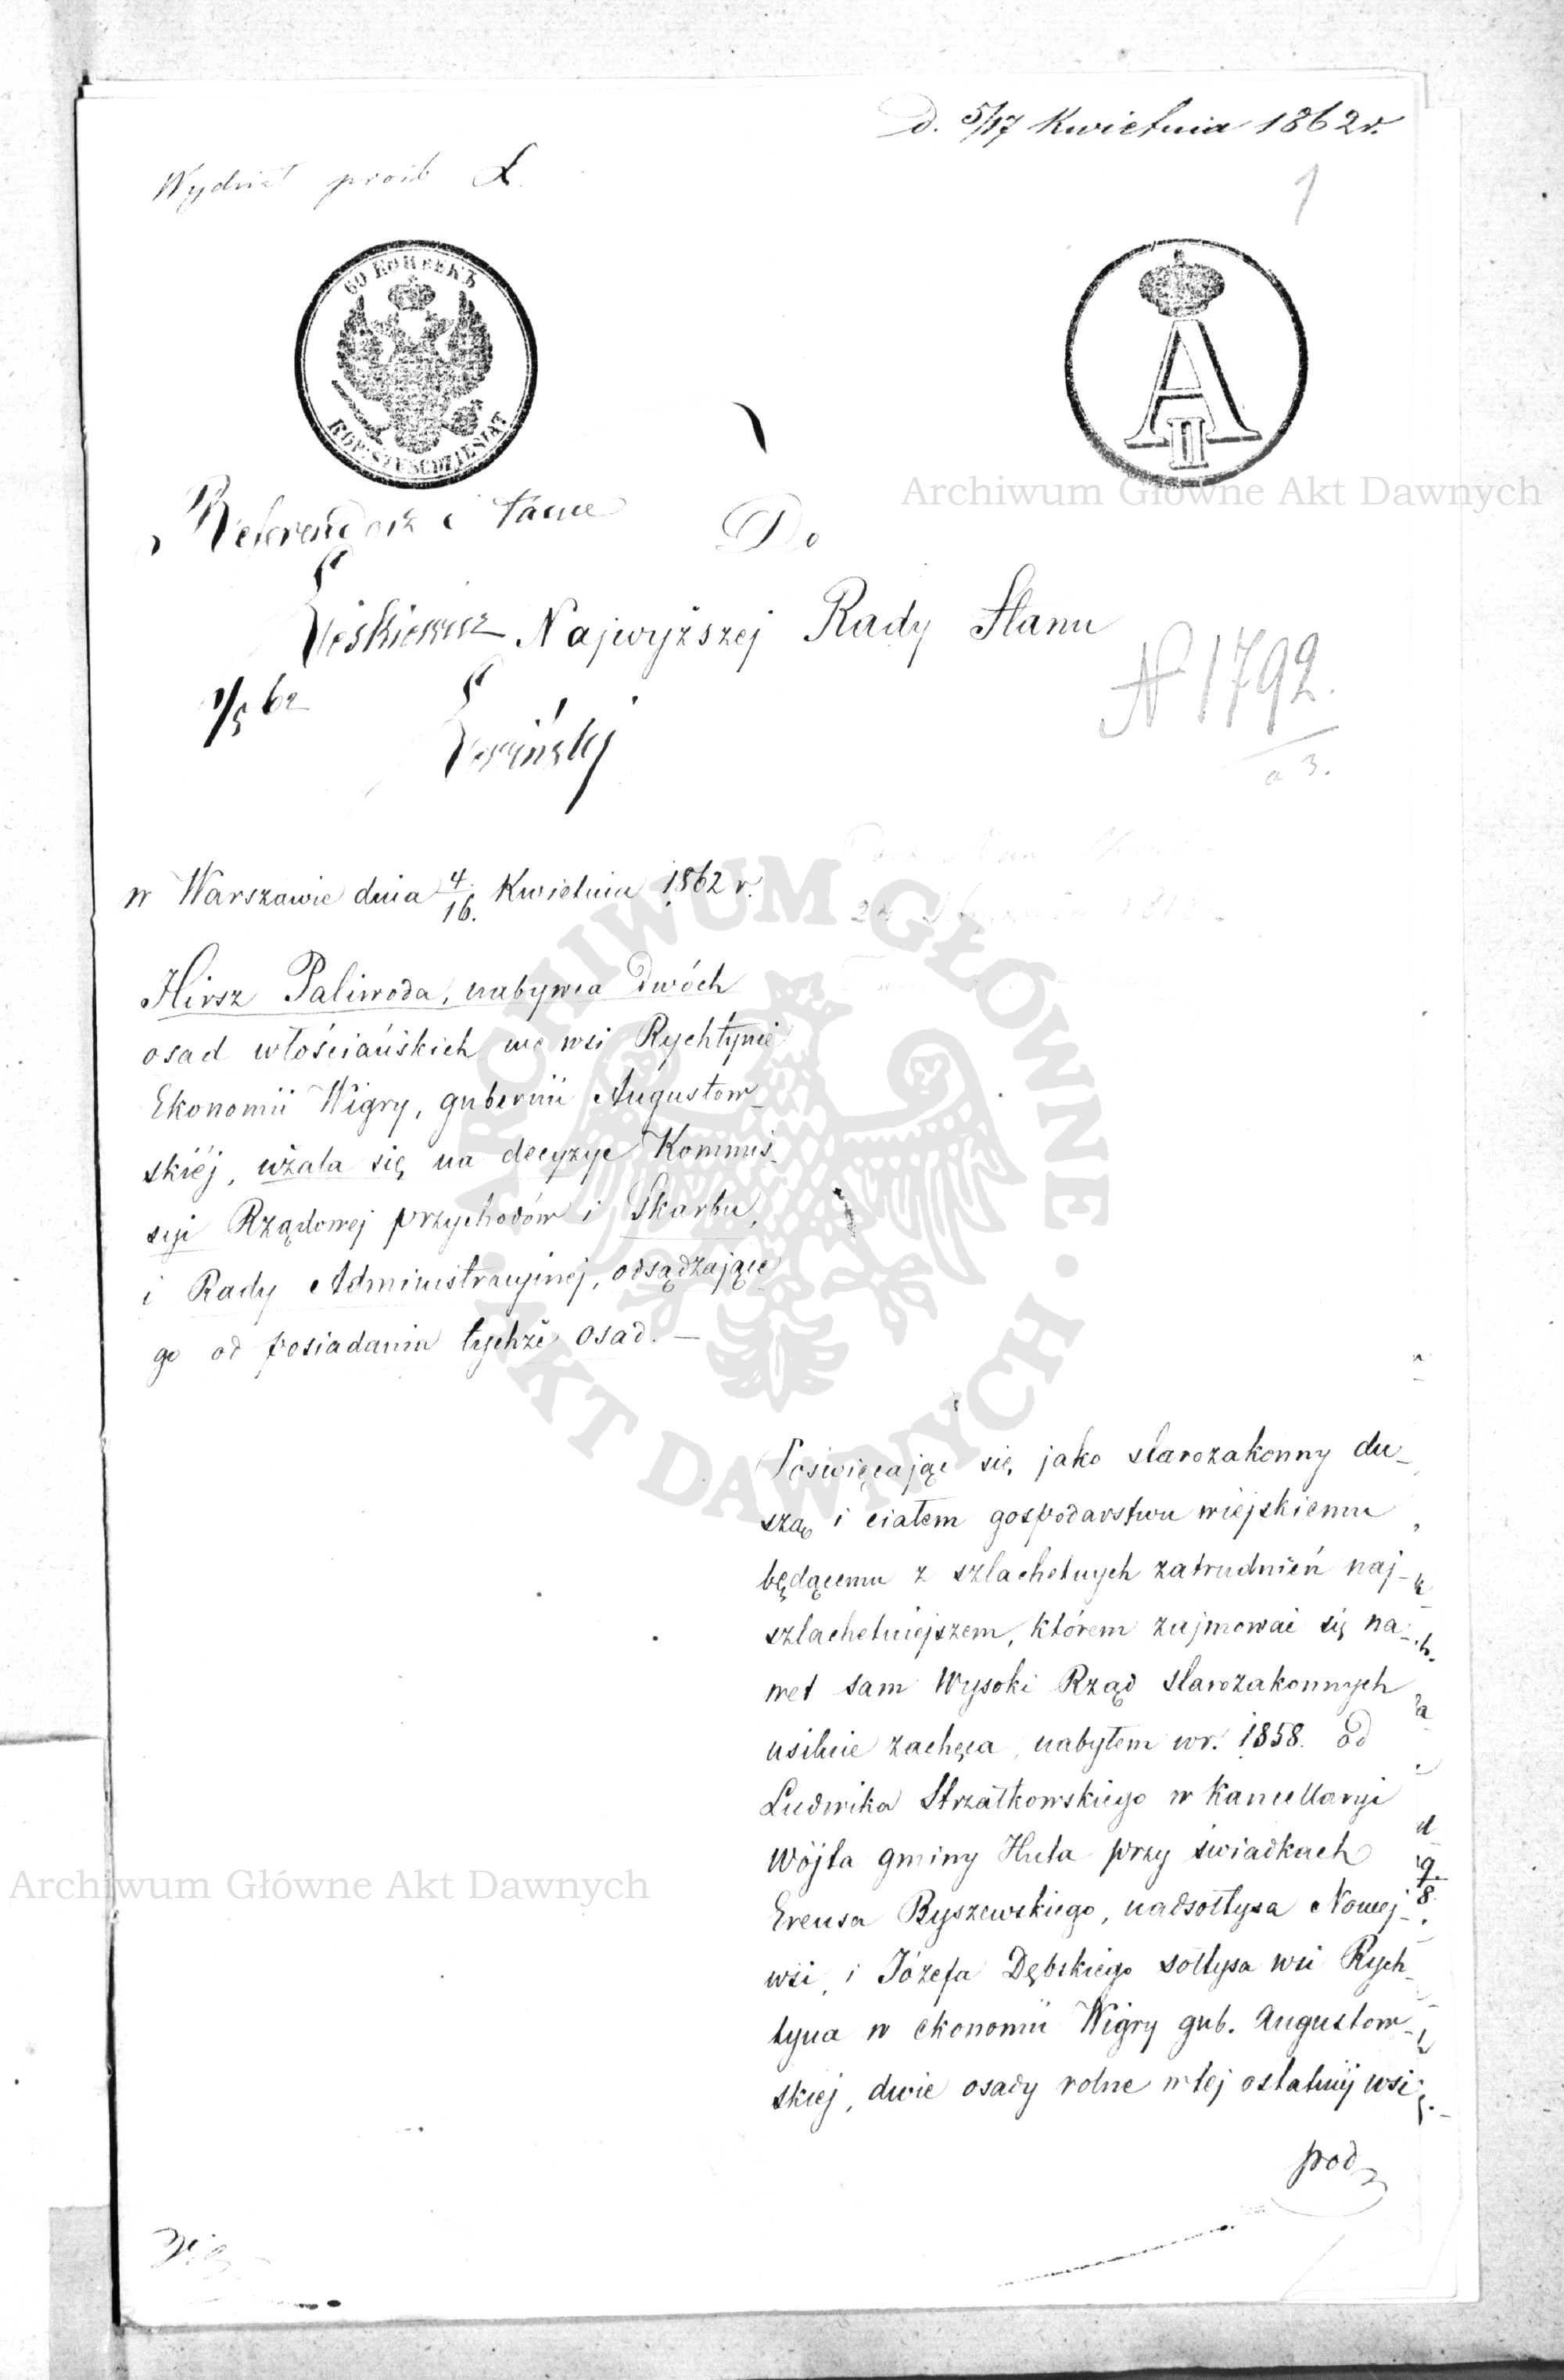 d. 5/17 Kwietnia 1862 r.
Wydział próśb
1
60 КОПѢЕКЪ
KOP. SZEŚĆDZIESIĄT
A II
Referendarz
Do
Najwyższej Rady Stanu
N 1792.
a 3.
1/5 62
w Warszawie dnia 4/16. Kwietnia 1862 r.
Hirsz Paliwoda, nabywca dwóch
osad włościańskich we wsi Rychtynie
Ekonomii Wigry, gubernii Augustow_
skiéj, użala się na decyzye Kommis_
syi Rządowej przychodów i Skarbu,
i Rady Administracyjnéj, odsądzające
go od posiadania tychże osad. —
Poświęcając się, jako starozakonny du_
szą i ciałem gospodarstwu wiejskiemu
będącemu z szlachetnych zatrudnień naj_
szlachetniejszem, którem zajmować się na_
wet sam Wysoki Rząd starozakonnych
usilnie zachęca, nabyłem w r. 1858. od
Ludwika Strzałkowskiego w Kancellaryi
Wójta gminy Huta przy świadkach
Ereusa Ryszewskiego, nadsołtysa Nowej_
wsi, i Józefa Dębskiego sołtysa wsi Rych_
tyna w ekonomii Wigry gub. Augustow_
skiej, dwie osady rolne w tej ostatniej wsi
pod
Archiwum Główne Akt Dawnych
ARCHIWUM GŁÓWNE AKT DAWNYCH
Archiwum Główne Akt Dawnych